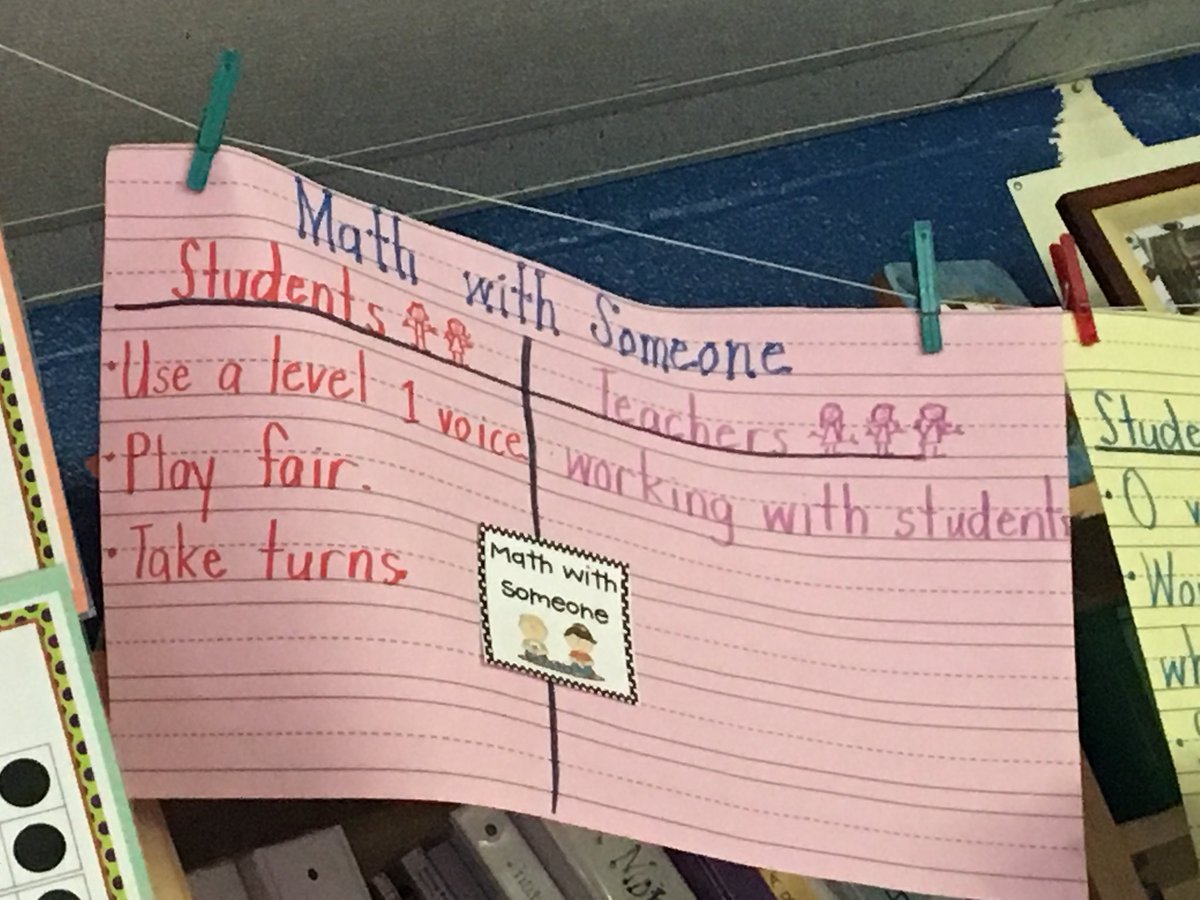 Math with Someone
Students
· Use a level 1 voice
· Play fair.
· Take turns.
Teachers
working with students
Math with
Someone
Stude
· O w
· Wor
wh